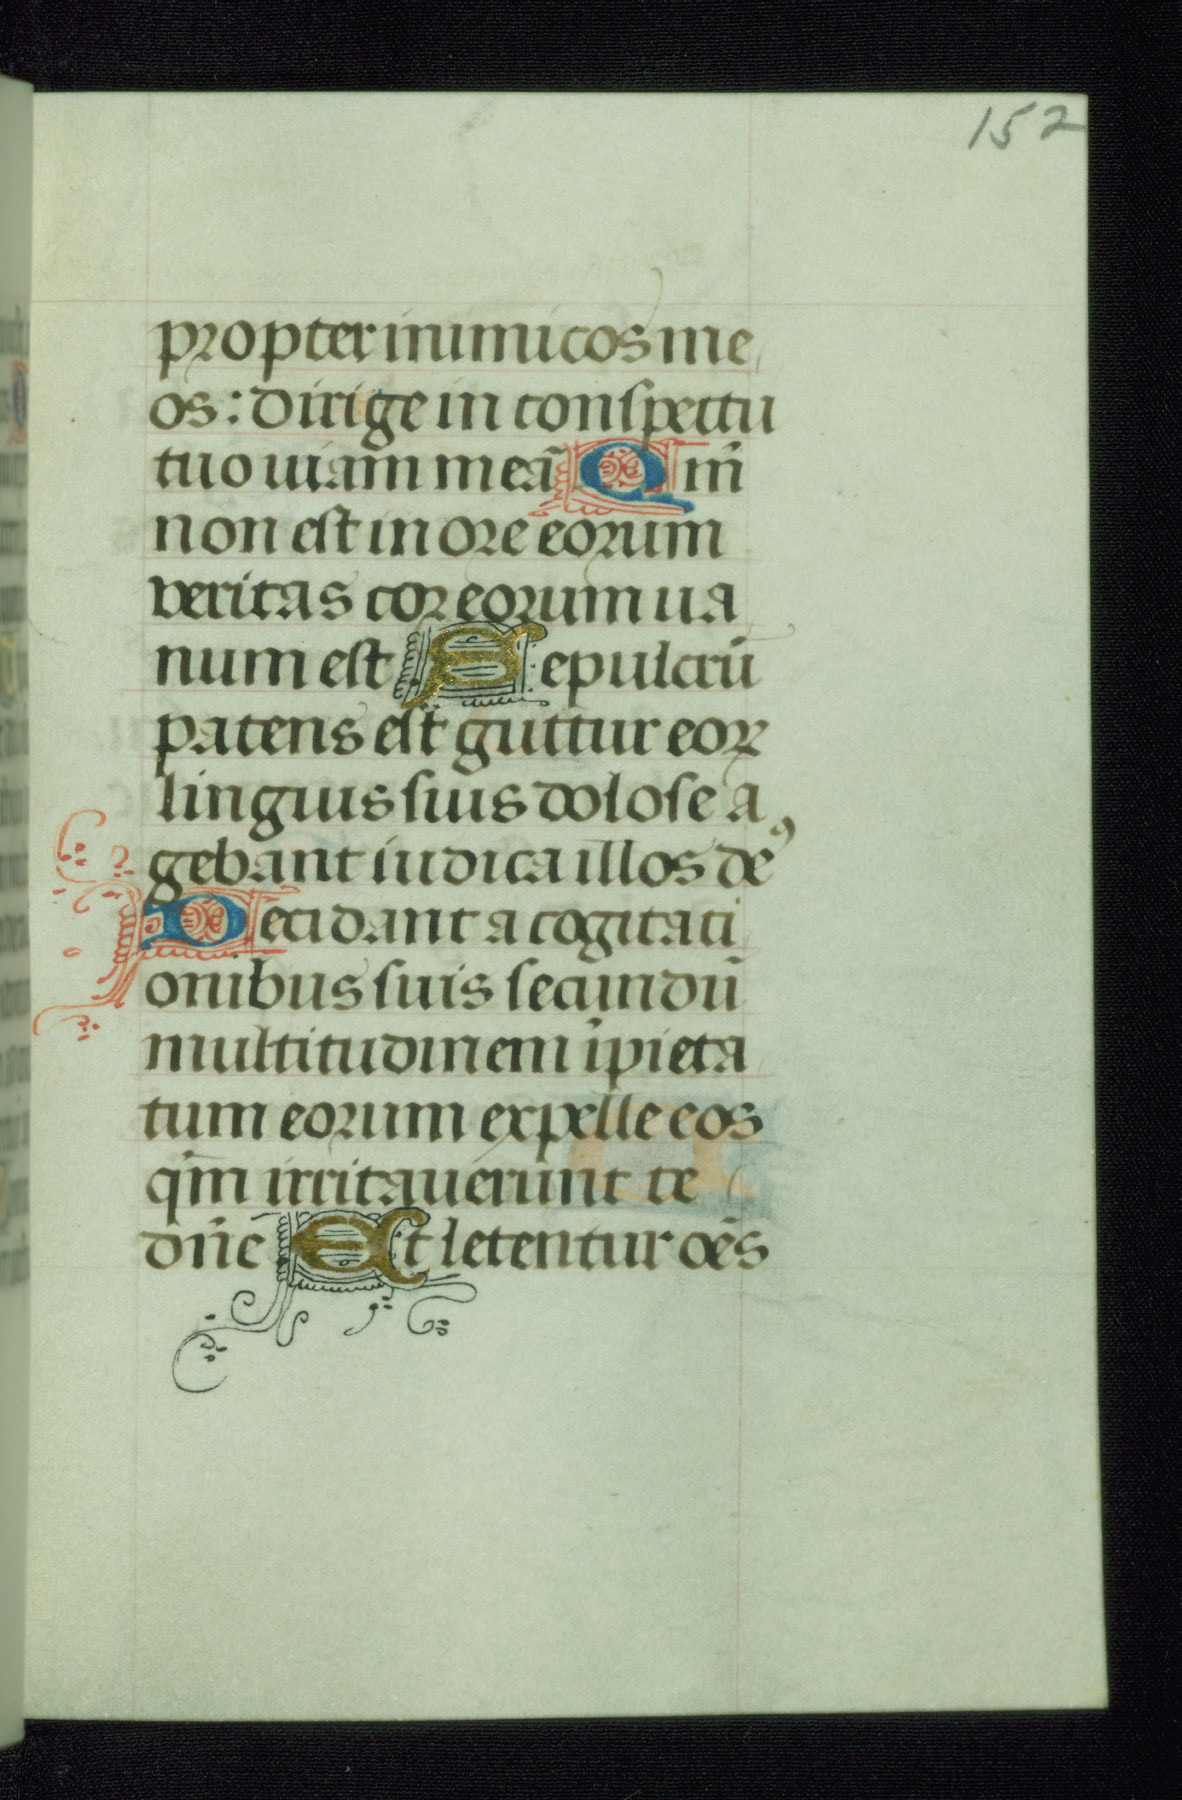 152
propter inimicos me
os: dirige in conspectu
tuo uiam meā Qm̄
non est in ore eorum
veritas cor eorum ua
num est Sepulcrū
patens est guttur eoꝝ
linguis suis dolose a
gebant iudica illos deꝰ
Decidant a cogitati
onibus suis secundū
multitudinem īpieta
tum eorum expelle eos
qm̄ irritauerunt te
dn̄e Et letentur oēs